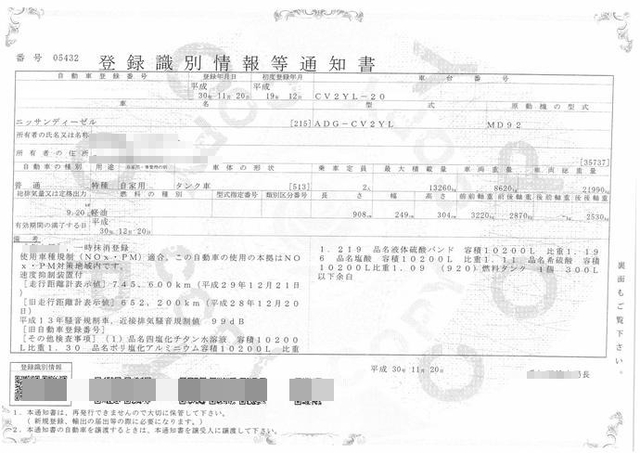 番号 05432
登録識別情報等通知書
自動車登録番号 登録年月日 初度登録年月 車台番号
平成 30年11月20日 平成 19年12月 CV2YL-20
車名 型式 原動機の型式
ニッサンディーゼル [215] ADG-CV2YL MD92
所有者の氏名又は名称
所有者の住所
[35737]
自動車の種別 用途 自家用・事業用の別 車体の形状 乗車定員 最大積載量 車両重量 車両総重量
普通 特種 自家用 タンク車 [513] 2人 13260kg 8620kg 21990kg
総排気量又は定格出力 燃料の種類 型式指定番号 類別区分番号 長さ 幅 高さ 前前軸重 前後軸重 後前軸重 後後軸重
9.20 軽油 908cm 249cm 304cm 3220kg 2870kg -kg 2530kg
有効期間の満了する日
平成 30年12月20日
備考
,一時抹消登録
使用車種規制(NOx・PM)適合,この自動車の使用の本拠はNO
x・PM対策地域内です。
速度抑制装置付
[走行距離計表示値]745,600km(平成29年12月21日)
[旧走行距離計表示値]652,200km(平成28年12月20日)
平成13年騒音規制車,近接排気騒音規制値 99dB
[旧自動車登録番号]
[その他検査事項](1)品名四塩化チタン水溶液 容積10200
L比重1.30 品名ポリ塩化アルミニウム容積10200L 比重
1.219 品名液体硫酸バンド 容積10200L 比重1.19
6 品名塩酸 容積10200L 比重1.11 品名希硫酸 容積
10200L比重1.09 (920)燃料タンク 1個 300L
以下余白
裏面もご覧下さい。
登録識別情報
平成 30年11月20日
長
1.本通知書は、再発行できませんので大切に保管して下さい。
(新規登録、輸出の届出等の際に必要になります。)
2.本通知書の自動車を譲渡するときは、本通知書を譲受人に譲渡して下さい。